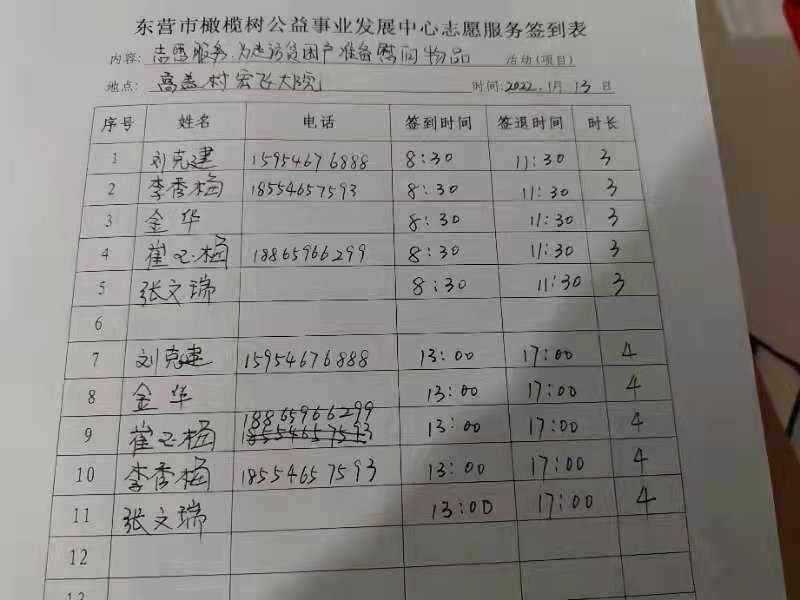 东营市橄榄树公益事业发展中心志愿服务签到表
内容: 志愿服务.为走访贫困户准备慰问物品 活动(项目)
地点: 高盖村宏飞大院 时间: 2022.1月13日
序号 姓名 电话 签到时间 签退时间 时长
1 刘克建 15954676888 8:30 11:30 3
2 李秀梅 18554657593 8:30 11:30 3
3 金华 8:30 11:30 3
4 崔玉梅 18865966299 8:30 11:30 3
5 张文瑞 8:30 11:30 3
6
7 刘克建 15954676888 13:00 17:00 4
8 金华 13:00 17:00 4
18865966299
9 崔玉梅 18554657593 13:00 17:00 4
10 李秀梅 18554657593 13:00 17:00 4
11 张文瑞 13:00 17:00 4
12
13